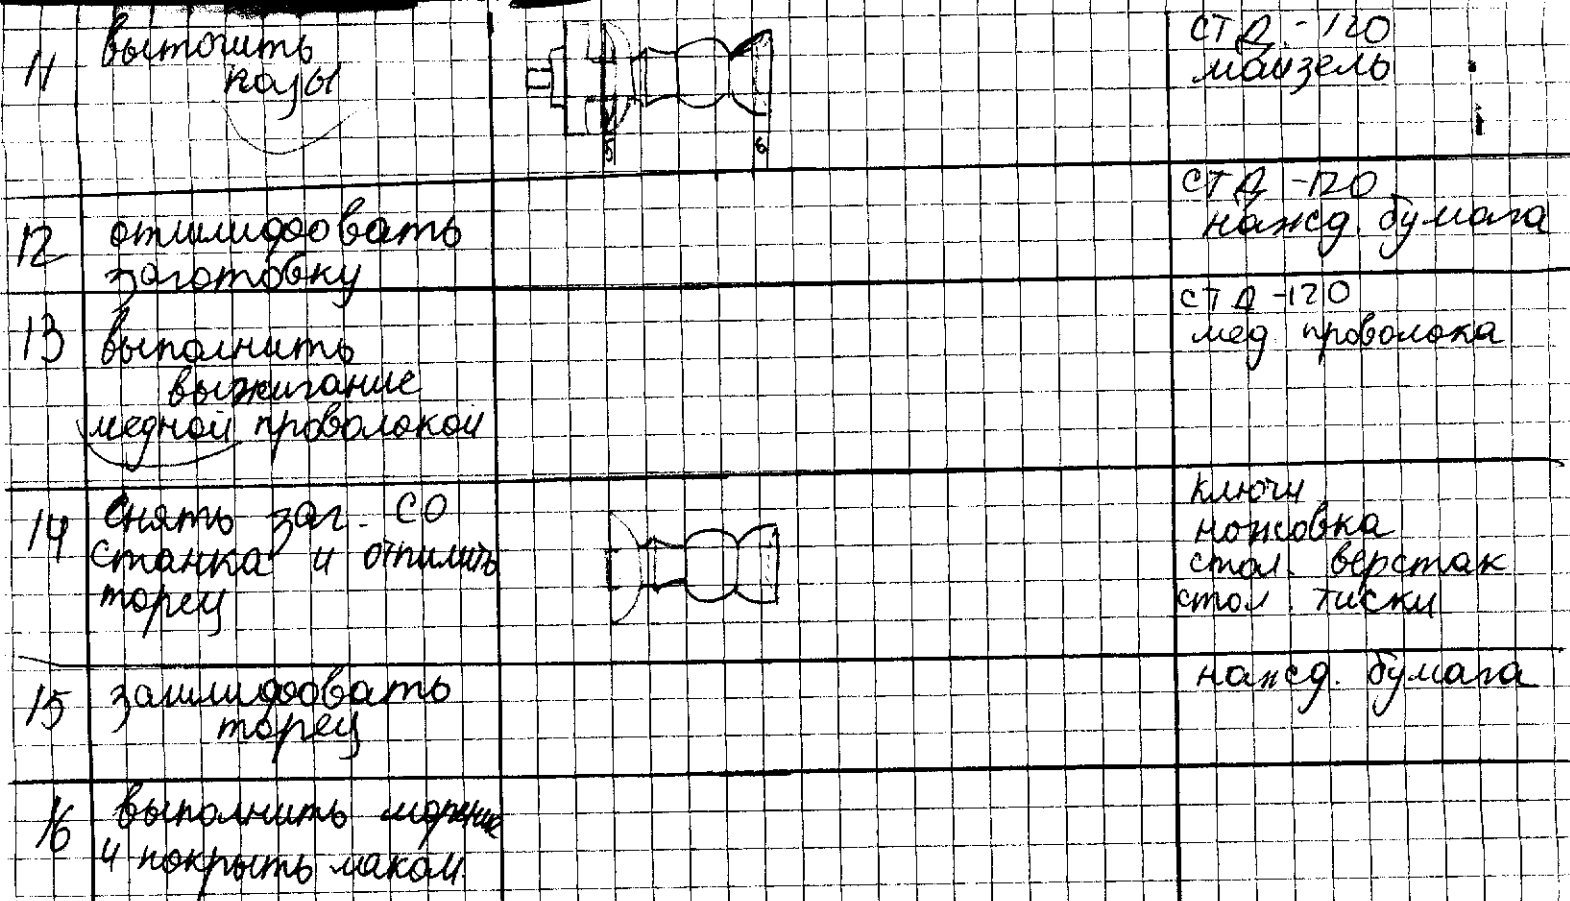 11 выточить
пазы
СТД-120
майзель
12 отшлифовать
заготовку
СТД-120
нажд. бумага
13 выполнить
выжигание
медной проволокой
СТД-120
мед проволока
14 Снять заг. СО
станка и отпилить
торец
ключи
ножовка
стол. верстак
стол. тиски
15 зашлифовать
торец
нажд. бумага
16 выполнить морение
и покрыть лаком.
5
6